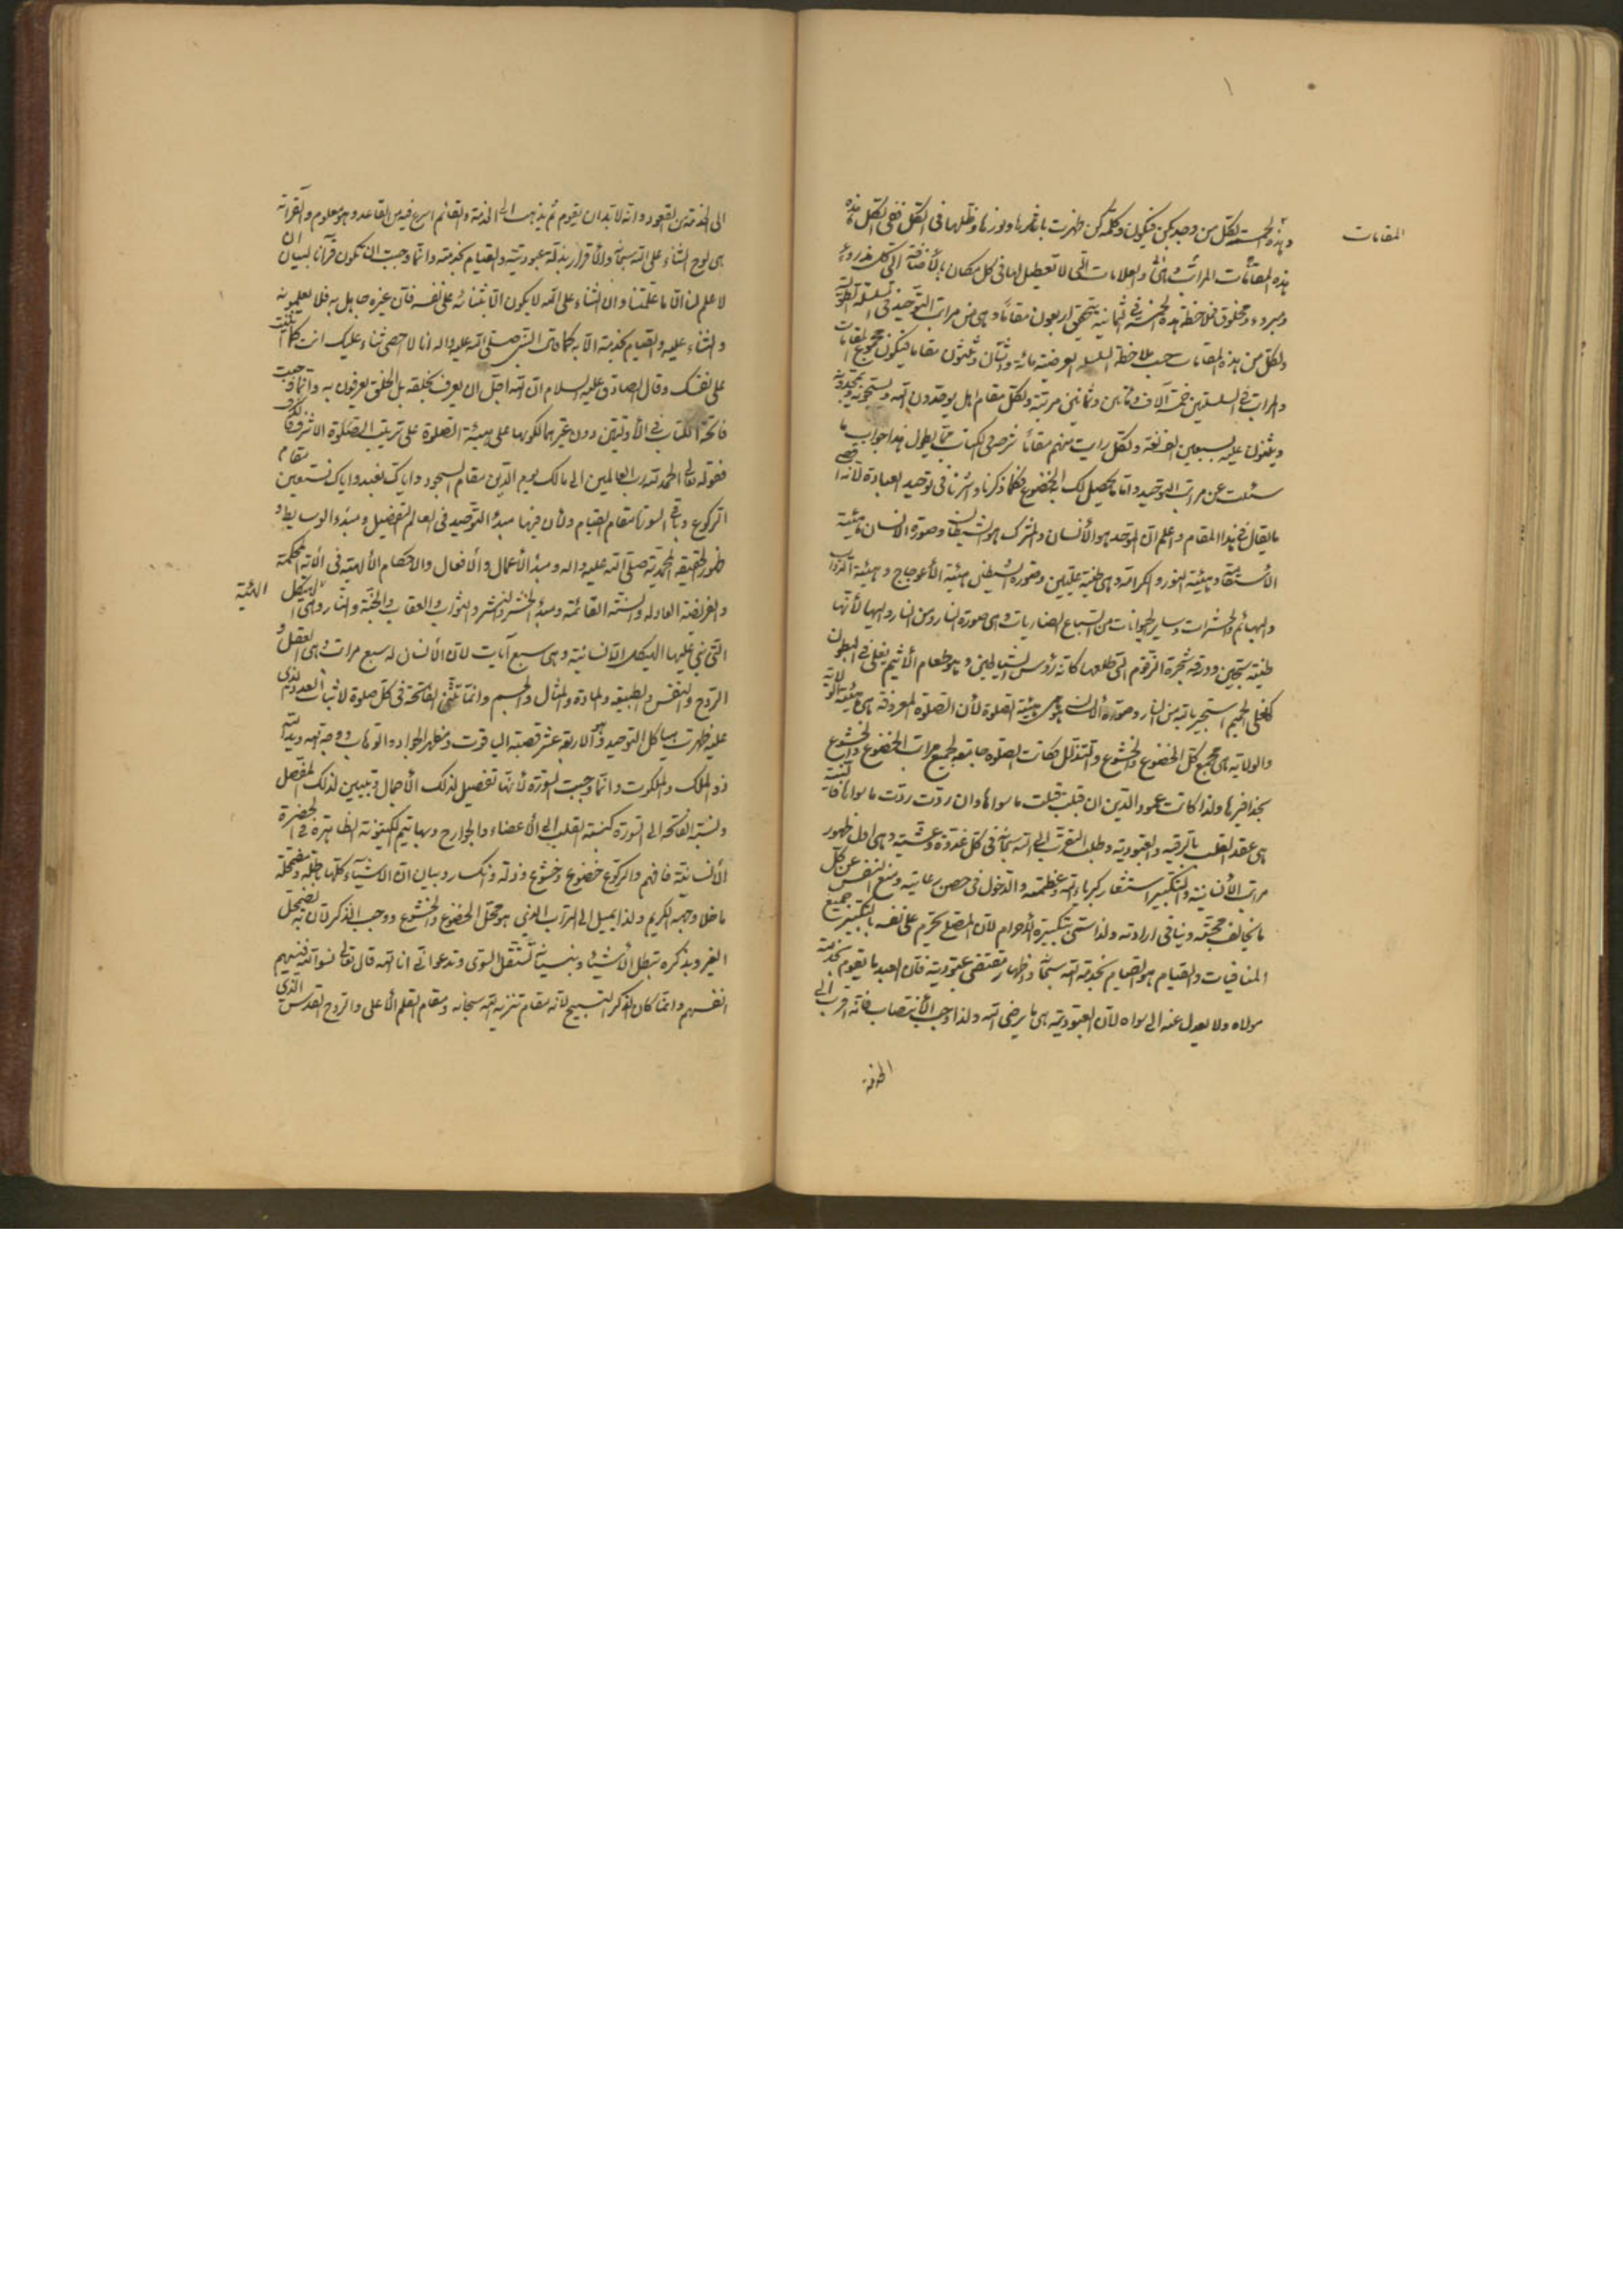 المقامات
وهذه الخمسة لكل من وجد بكن فيكون وكلمة كن ظهرت باثرها ونورها وظلها في الكل ففي الكل هذه
هذه المقامات المراتب والعلامات التي لا تعطيل لها في كل مكان بالأضافة الى كل مذروء
ومبروء ومخلوق فملاحظة هذه الخمسة في الثمانية يتحقق اربعون مقاما وهي من مراتب التوحيد في السلسلة الطولية
ولكل من هذه المقامات حسب ملاحظة السلسلة العرضية مائة واثنان وثلثون مقاما فيكون مجموع المقامات
والمراتب في السلسلتين خمسة آلاف ومأتين وثمانين مرتبة ولكل مقام اهل يوحدون الله ويسبحونه ويمجدونه
ويثنون عليه بسبعين الف لغة ولكل رايت منهم مقاما شرحه في الكتاب مما يطول هذا جواب ما
سئلت عن مراتب التوحيد واما ما يحصل لك الخضوع فكلما ذكرنا واشرنا في توحيد العبادة لانه اقصى
ما يقال في هذا المقام واعلم ان الموحد هو الأنسان والمشرك هو الشيطان وصورة الانسان هيئية
الأستقامة وهيئية النور والكرامة وهي طينة عليين وصورة الشيطان هيئية الأعوجاج وهيئية الدواب
والبهائم والحشرات وساير الحيوانات من السباع الضاريات وهي صورة النار ومن النار واليها لأنها
طينة سجين وورقة شجرة الزقوم التي طلعها كانه رؤس الشياطين وهو طعام الأثيم يغلي في البطون
كغلي الحميم استجير بالله من النار وصورة الانسان هي هيئية الصلوة لأن الصلوة المعروفة هي هيئية الولاية لانه
والولاية هي مجمع كل الخضوع والخشوع والتذلل فكانت الصلوة جامعة لجميع مراتب الخضوع والخشوع
بحذافيرها ولذا كانت عمود الدين ان قبلت قبلت ما سواها وان ردت ردت ما سواها فالنية
هي عقد القلب بالرقية والعبودية وطلب التقرب الى الله سبحانه في كل غدوة وعشية وهي اول ظهور
مراتب الأنسانية والتكبير استشعار كبرياء الله وعظمته والدخول في حصن رعايته ومنع النفس عن كل
ما يخالف محبته وينافي ارادته ولذا سمى بتكبيرة الأحرام لأن المصلي يحرم على نفسه بالتكبيرة جميع
المنافيات والقيام هو القيام بخدمة الله سبحانه واظهار مقتضى عبوديته فان العبد ما يقوم بخدمة
مولاه ولا يعدل عنه الى سواه لأن العبودية هي ما يرضى الله ولذا وجب الأنتصاب فانه اقرب الى
الخدمة
الى الخدمة من القعود وانه لا بد ان يقوم ثم يذهب الى الخدمة والقائم اسرع فيه من القاعد وهو معلوم والقراءة
هي لوح الثناء على الله سبحانه والأقرار بذلة عبوديته والقيام بخدمته وانما وجبت ان تكون قرآنا لبيان ان
لا علم لنا الا ما علمتنا وان الثناء على الله لا يكون الا بثنائه على نفسه فان غيره جاهل به فلا يعلمونه
والثناء عليه والقيام بخدمته الا به كما قال النبي صلى الله عليه واله انا لا احصي ثناء عليك انت كما اثنيت
على نفسك وقال الصادق عليه السلام ان الله اجل ان يعرف بخلقه بل الخلق يعرفون به وانما وجبت
فاتحة الكتاب في الأوليين دون غيرهما لكونها على هيئة الصلوة على ترتيب الصلوة الاشرف فالاشرف
فقوله تعالى الحمد لله رب العالمين الى مالك يوم الدين مقام السجود واياك نعبد واياك نستعين مقام
الركوع وباقي السورة مقام القيام ولأن فيها مبدء التوحيد في العالم التفصيل ومبدء الوسايط و
ظهور الحقيقة المحمدية صلى الله عليه واله ومبدء الأعمال والأفعال والاحكام الألهية في الآية المحكمة
والفريضة العادلة والسنة القائمة ومبدء الحشر والنشر والثواب والعقاب والجنة والنار وهي الهيكل
التي بني عليها الهيكل الانسانية وهي سبع آيات لأن الأنسان له سبع مراتب وهي العقل و
الروح والنفس والطبيعة والمادة والمثال والجسم وانما تثنى الفاتحة في كل صلوة لاثبات العدد الذي
عليه ظهرت هياكل التوحيد وهو الاربعة عشر قصبة الياقوت ومظهر الجواد والوهاب ووجه الله ويد الله
ذو الملك والملكوت وانما وجبت السورة لأنها تفصيل لذلك الأجمال وتبيين لذلك المفصل
ونسبة الفاتحة الى السورة كنسبة القلب الى الأعضاء والجوارح وبها يتم الكينونة الظاهرة في الحضرة
الأنسانية فافهم والركوع خضوع وخشوع وذلة وانكسار وبيان ان الاشياء كلها باطلة مضمحلة
ما خلا وجهه الكريم ولذا يميل الى التراب الذي هو محل الخضوع والخشوع ووجب الذكر لأن به يضمحل
الغير وبذكره تبطل الأشياء وبنسيانه تستقل السوى وتدعو اني انا الله قال تعالى نسوا الله فنسيهم
انفسهم وانما كان الذكر التسبيح لأنه مقام تنزيه الله سبحانه ومقام القلم الأعلى والروح القدس الذي